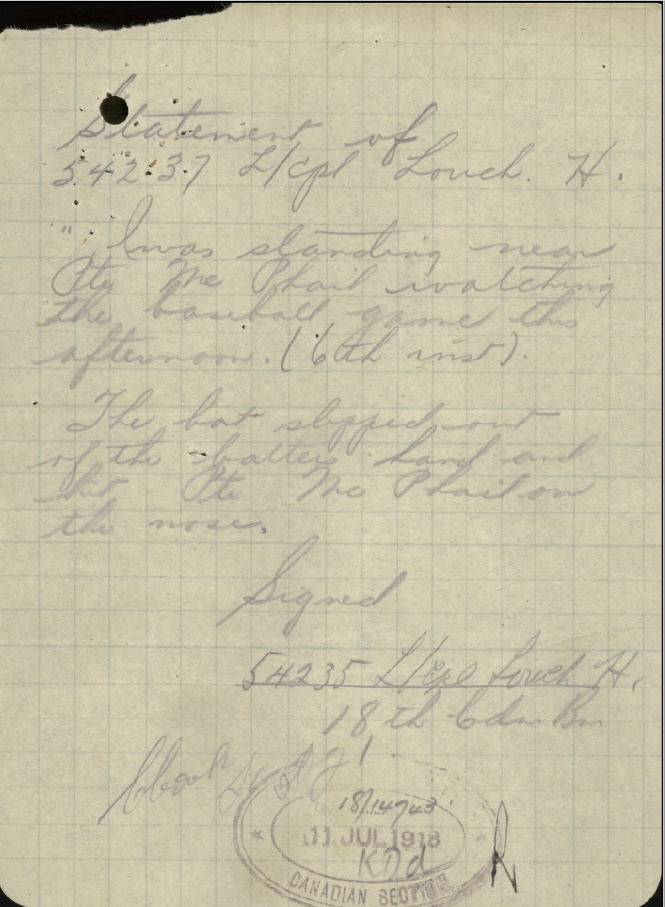 Statement of
54237 L/cpl Louch. H.
" I was standing near
Pte Mc Phail watching
the baseball game this
afternoon. (6th inst).
The bat slipped out
of the batters hand and
hit Pte Mc Phail on
the nose.
Signed
54235 L/cpl Louch H.
18th Cdn Bn
18/14743
11 JUL 1918
KDd
CANADIAN SECTION